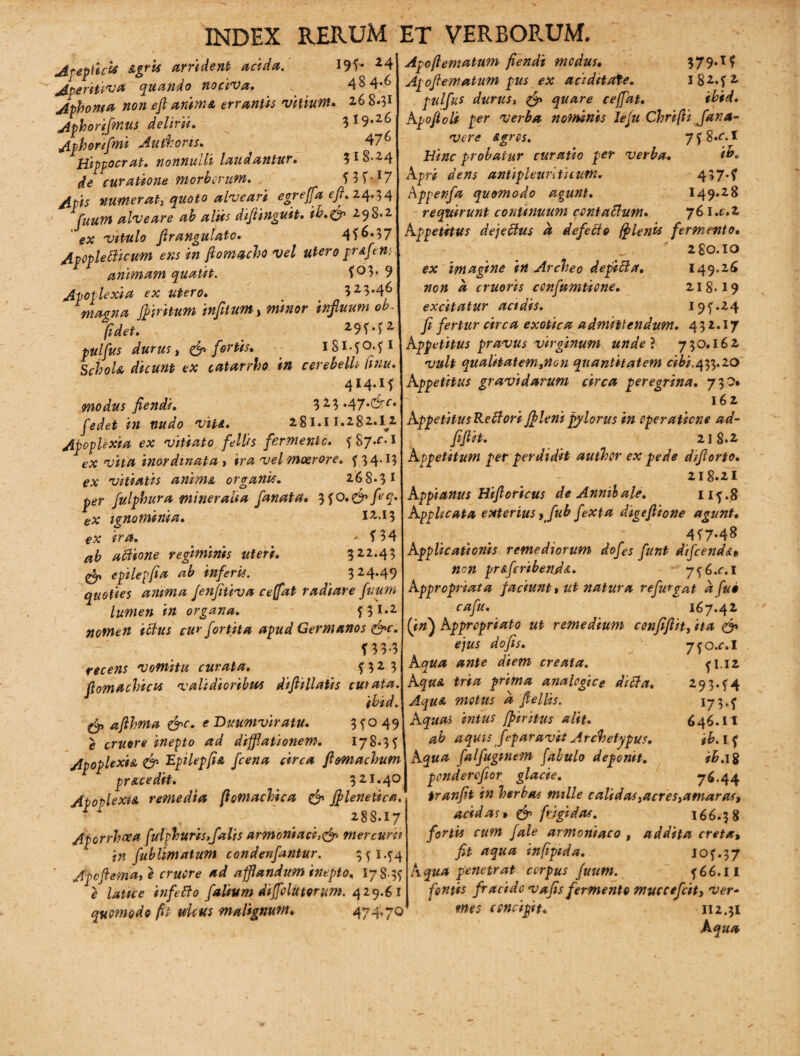 INDEX RERUM ET VERBORUM.
Apepticis ægris arrident acida. 195. 24
Aperitiva quando nociva. 484.6
Aphonia non est animæ errantis vitium. 268.31
Aphorismus delirii. 319.26
Aphorismi Authoris. 476
Hippocrat. nonnulli laudantur. 318.24
de curatione morborum. 535.17
Apis numerat, quoto alveari egressa est. 24.34
suum alveare ab aliis distinguit. ib.& 298.2
ex vitulo strangulato. 456.37
Apoplecticum ens in stomacho vel utero præsens
animam quatit. 503. 9
Apoplexia ex utero. 323.46
magna spiritum insitum, minor influum ob-
sidet. 295.52
pulsus durus, & fortis. 181.50.51
Scholæ dicunt ex catarrho in cerebelli sinu.
414.15
modus fiendi. 323.47.&c.
sedet in nudo vitæ. 281.11.282.12
Apoplexia ex vitiato fellis fermento. 587.c.1
ex vita inordinata, ira vel mœrore. 534.13
ex vitiatis animæ organis. 268.31
per sulphura mineralia sanata. 350.& seq.
ex ignominia. 12.13
ex ira. 534
ab actione regiminis uteri. 322.43
& epilepsia ab inferis. 324.49
quoties anima sensitiva cessat radiare suum
lumen in organa. 531.2
nomen ictus cur sortita apud Germanos &c.
533.3
recens vomitu curata. 532 3
stomachicis validioribus distillatis curata.
ibid.
& asthma &c. e Duumviratu. 350 49
è cruore inepto ad difflationem. 178.35
Apoplexiæ & Epilepsiæ scena circa stomachum
præcedit. 321.40
Apoplexiæ remedia stomachica & splenetica.
288.17
Aporrhœa sulphuris, salis armoniaci, & mercurii
in sublimatum condensantur. 351.54
Apostema, è cruore ad afflandum inepto. 178.35
è latice infecto salium dissolutorum. 429.61
quomodo fit ulcus malignum. 474.70
Apostematum fiendi modus. 379.15
Apostematum pus ex aciditate. 182.52
pulsus durus, & quare cessat. ibid.
Apostoli per verba nominis Iesu Christi sana-
vere ægros. 758.c.1
Hinc probatur curatio per verba. ib.
Apri dens antipleuriticum. 437.5
Appensa quomodo agunt. 149.28
requirunt continuum contactum. 761.c.2
Appetitus dejectus à defecto splenis fermento.
280.10
ex imagine in Archeo depicta. 149.26
non à cruoris consumtione. 218.19
excitatur acidis. 195.24
si fertur circa exotica admittendum. 432.17
Appetitus pravus virginum unde? 730.162
vult qualitatem, non quantitatem cibi. 433.20
Appetitus gravidarum circa peregrina. 730.
162
Appetitus Rectori spleni pylorus in operatione ad-
sistit. 218.2
Appetitum per perdidit author ex pede distorto.
218.21
Appianus Historicus de Annibale. 115.8
Applicata exterius, sub sexta digestione agunt.
457.48
Applicationis remediorum doses sunt discendæ,
non præscribendæ. 756.c.1
Appropriata faciunt, ut natura resurgat à suo
casu. 167.42
(in) Appropriato ut remedium consistit, ita &
ejus dosis. 750.c.1
Aqua ante diem creata. 51.12
Aquæ tria prima analogice dicta. 293.54
Aquæ motus à stellis. 173.5
Aquas intus spiritus alit. 646.11
ab aquis separavit Archetypus. ib.15
Aqua salsuginem sabulo deponit. ib.18
ponderosior glacie. 76.44
transit in herbas mille calidas, acres, amaras,
acidas, & frigidas. 166.38
fortis cum sale armoniaco, addita creta,
fit aqua insipida. 105.37
Aqua penetrat corpus suum. 566.11
fontis fracido vasis fermento muccescit, ver-
mes concipit. 112.31
Aqua